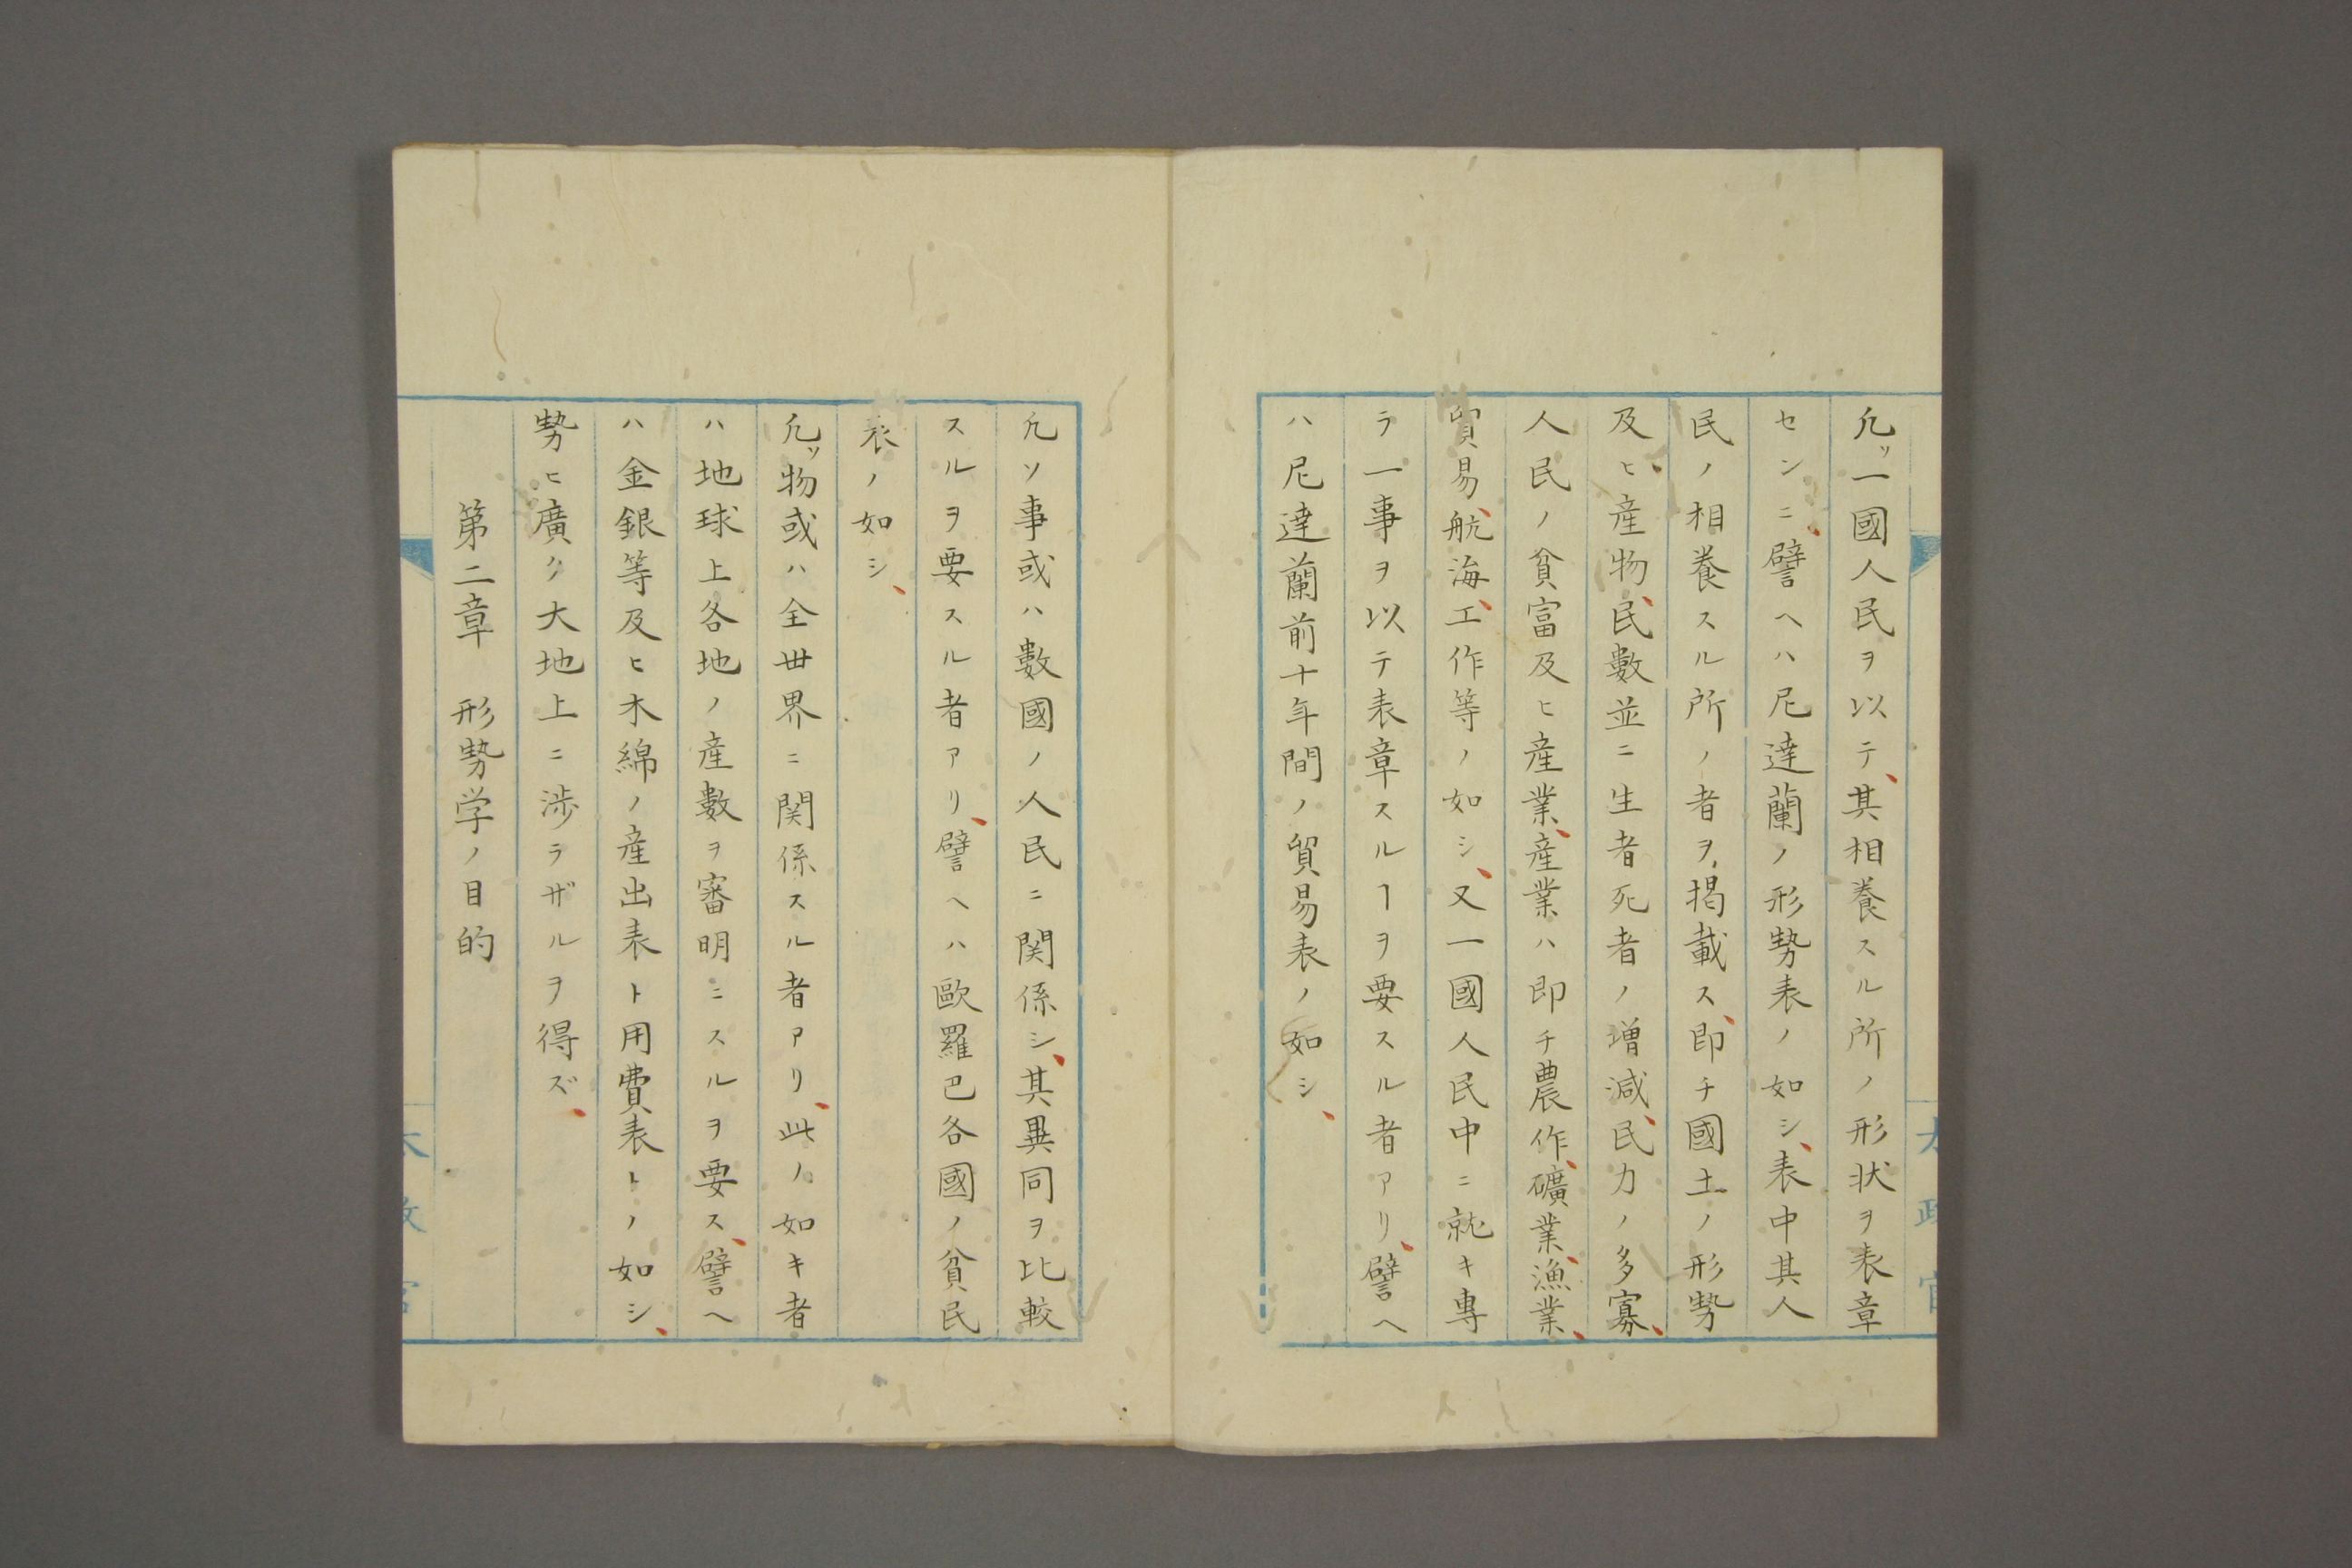 凢ソ一國人民ヲ以テ、其相養スル所ノ形状ヲ表章
センニ、譬ヘハ尼達蘭ノ形勢表ノ如シ、表中其人
民ノ相養スル所ノ者ヲ掲載ス、即チ國土ノ形勢
及ヒ産物、民數並ニ生者死者ノ増減、民力ノ多寡、
人民ノ貧富及ヒ産業、産業ハ即チ農作、礦業、漁業、
貿易、航海、工作等ノ如シ、又一國人民中ニ就キ專
ラ一事ヲ以テ表章スルヿヲ要スル者アリ、譬ヘ
ハ尼達蘭前十年間ノ貿易表ノ如シ、
凢ソ事或ハ數國ノ人民ニ関係シ、其異同ヲ比較
スルヲ要スル者アリ、譬ヘハ歐羅巴各國ノ貧民
表ノ如シ、
凢ソ物或ハ全世界ニ関係スル者アリ、此ノ如キ者
ハ地球上各地ノ産數ヲ審明ニスルヲ要ス、譬ヘ
ハ金銀等及ヒ木綿ノ産出表ト用費表トノ如シ、
勢ヒ廣ク大地上ニ渉ラザルヲ得ズ、
第二章　形勢学ノ目的
太政官